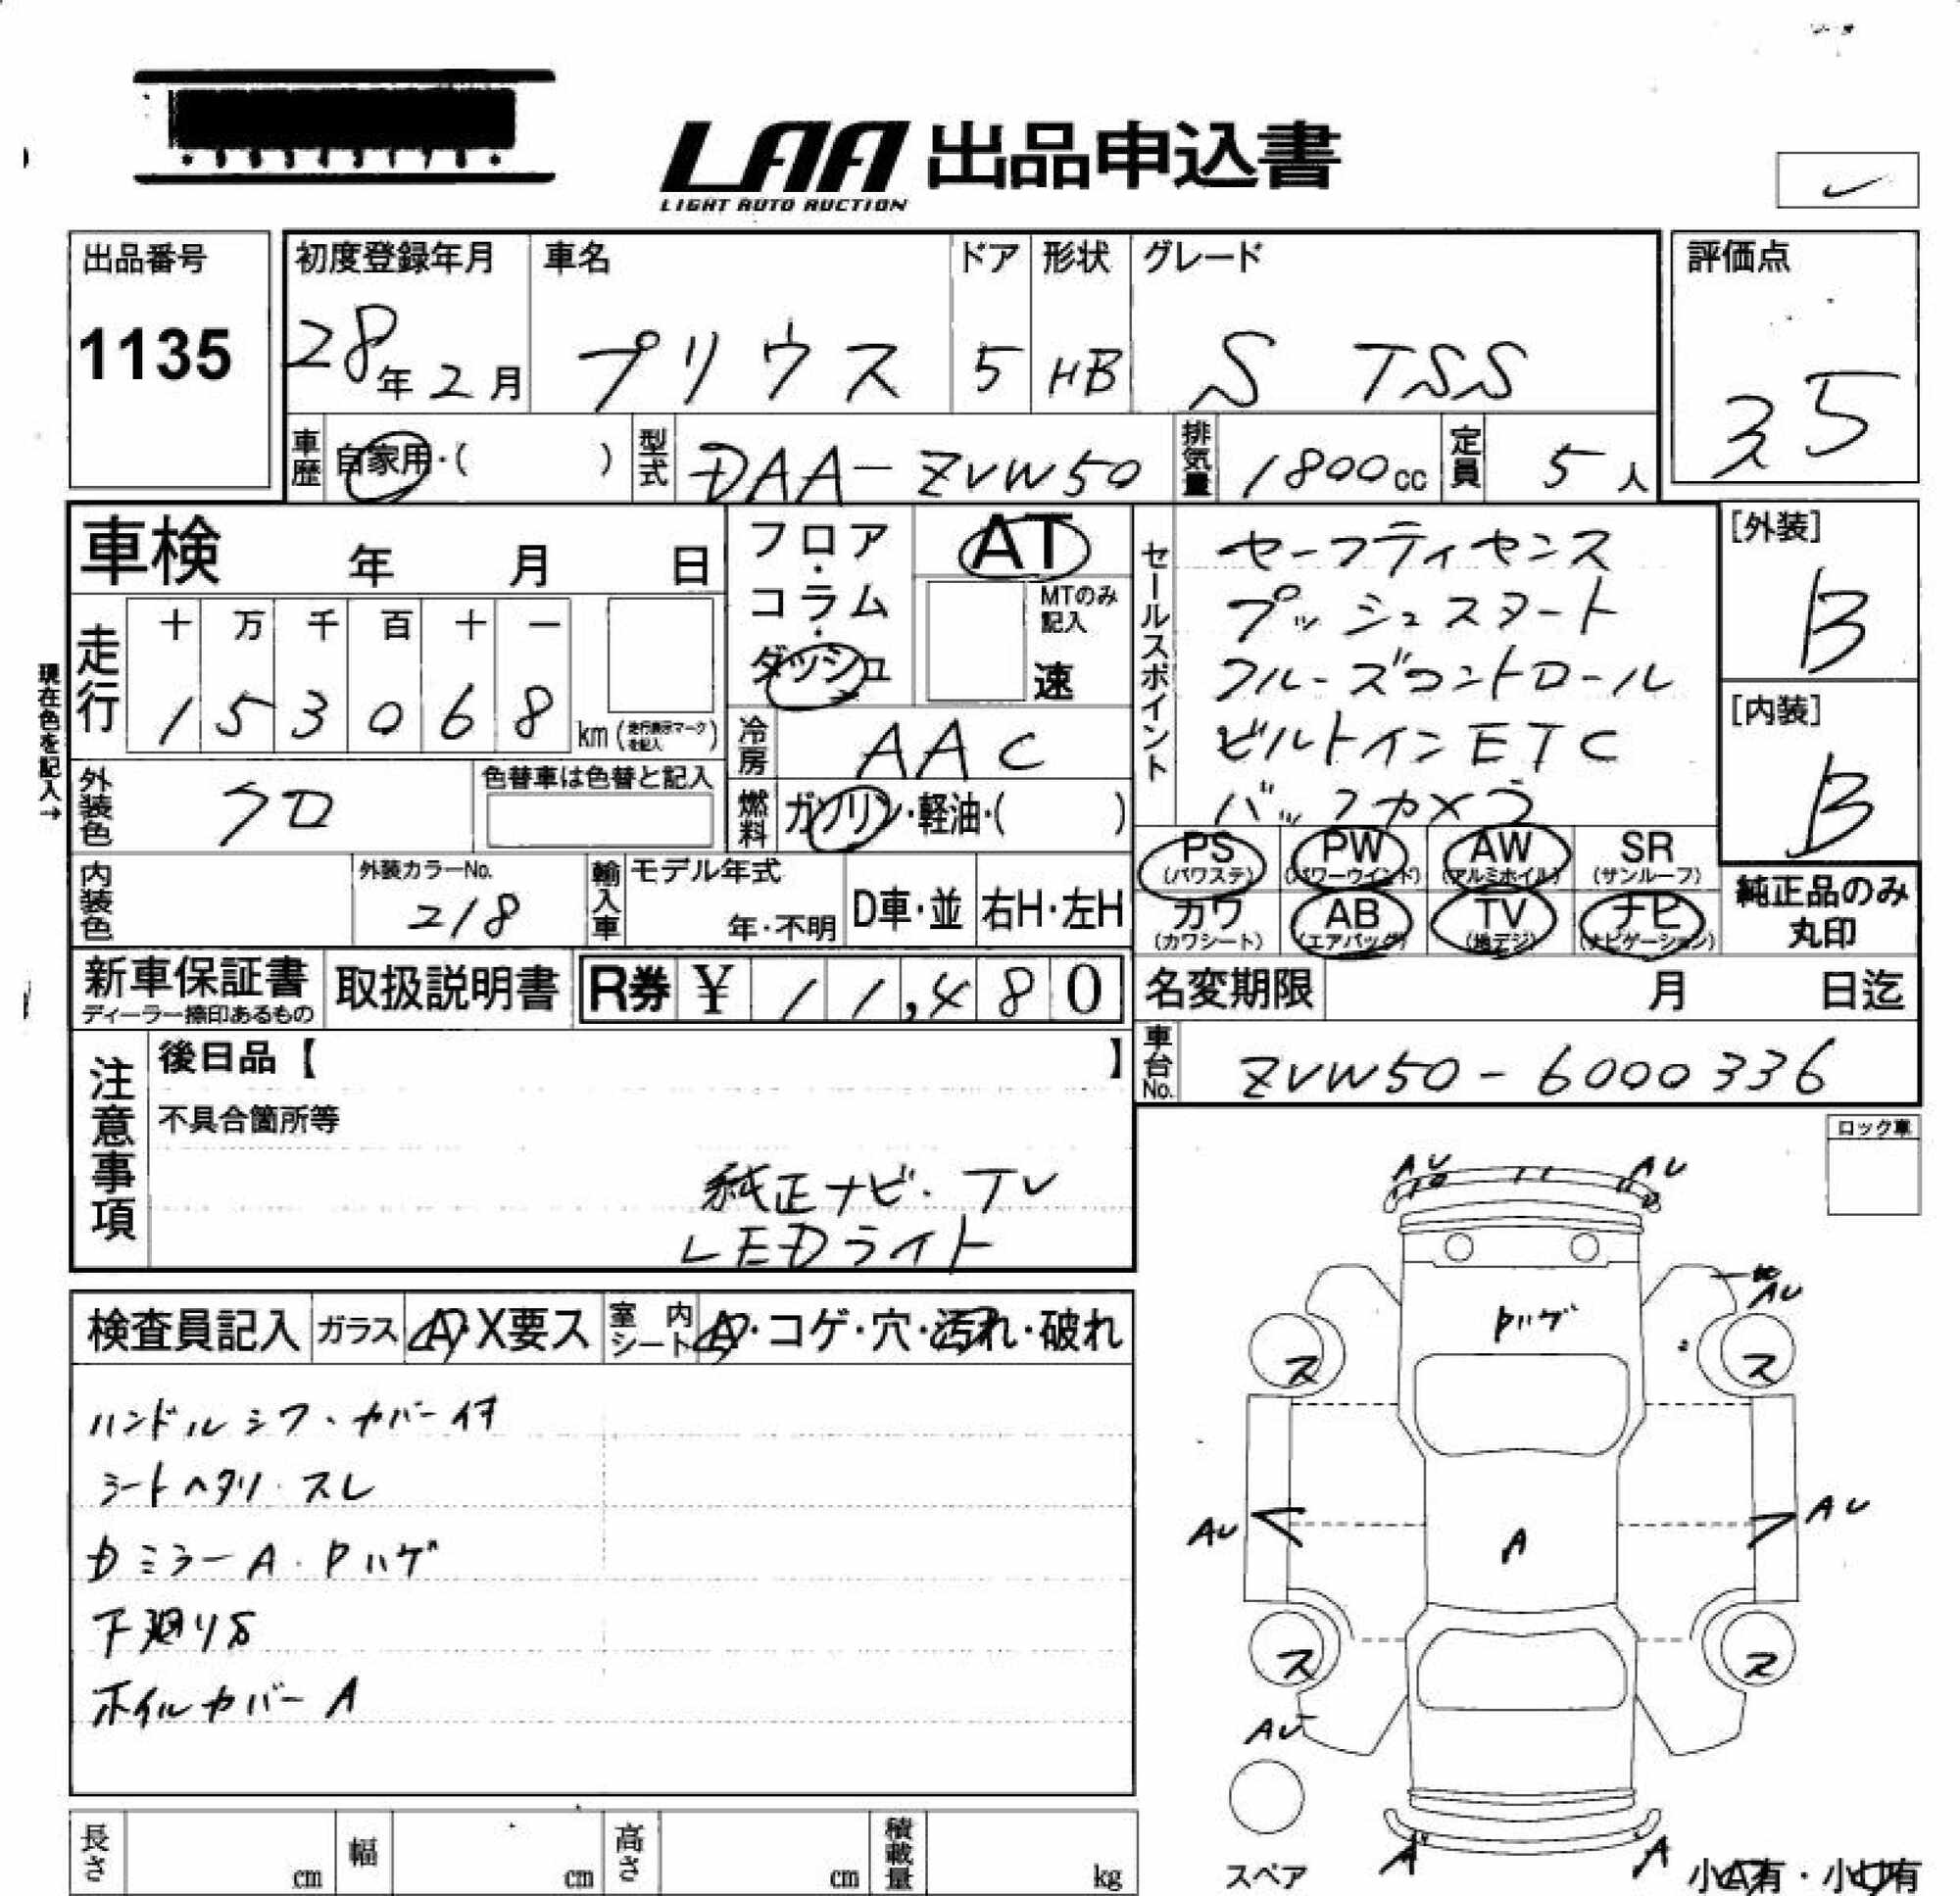 LAA 出品申込書
LIGHT AUTO AUCTION
出品番号
1135
初度登録年月
28年2月
車名
プリウス
ドア
5
形状
HB
グレード
S TSS
評価点
3.5
車歴
自家用・( )
型式
DAA-ZVW50
排気量
1800cc
定員
5人
車検 年 月 日
フロア・コラム・ダッシュ
AT
MTのみ記入
速
セールスポイント
セーフティセンス
プッシュスタート
クルーズコントロール
ビルトインETC
バックカメラ
[外装]
B
[内装]
B
現在色を記入→
走行
十 万 千 百 十 一
1 5 3 0 6 8 km (走行表示マークを記入)
冷房
AAC
外装色
クロ
色替車は色替と記入
燃料
ガソリン・軽油・( )
PS (パワステ)
PW (パワーウインド)
AW (アルミホイル)
SR (サンルーフ)
カワ (カワシート)
AB (エアバッグ)
TV (地デジ)
ナビ (ナビゲーション)
純正品のみ丸印
内装色
外装カラーNo.
218
輸入車
モデル年式
年・不明
D車・並
右H・左H
新車保証書
ディーラー捺印あるもの
取扱説明書
R券 ¥ 11,480
名変期限 月 日迄
車台No.
ZVW50-6000336
注意事項
後日品【 】
不具合箇所等
純正ナビ・TV
LEDライト
ロック車
検査員記入
ガラス
A・X要ス
室内シート
A・コゲ・穴・汚れ・破れ
ハンドルシフトカバー付
シートヘタリ・スレ
Dミラー A・Pハゲ
下廻りS
ホイルカバー A
AU
AU
AU
Pハゲ
ス
ス
AU
A
AU
ス
ス
AU
A
A
スペア
小A有・小U有
長さ cm
幅 cm
高さ cm
積載量 kg